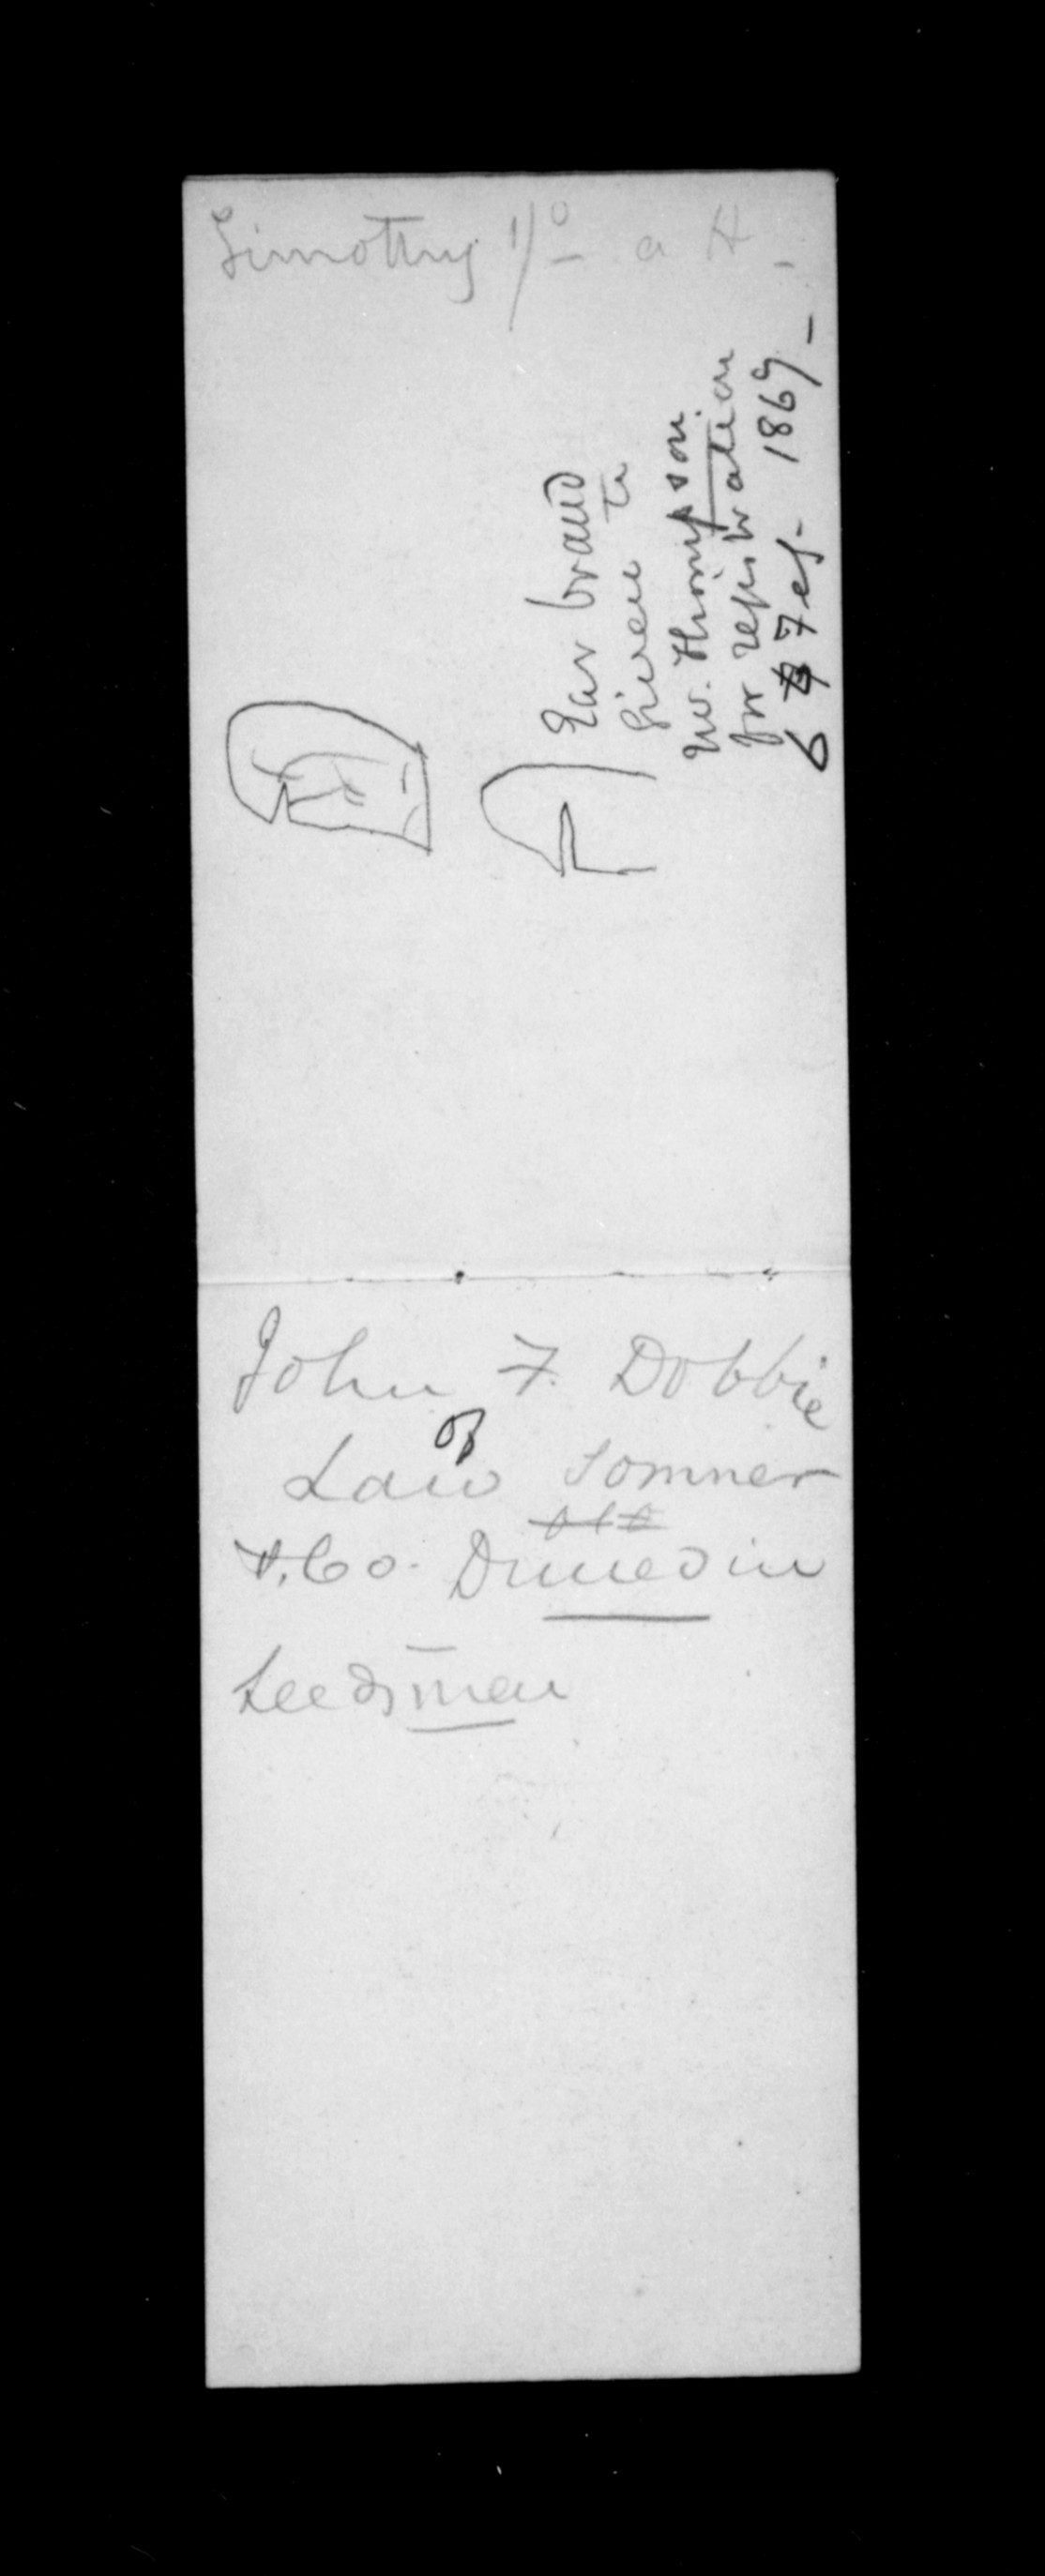 Timothy 1/0 a H -
Ear brand
given to
Mr. Thompson
for registration
6 Feb. 1869 -
John F. Dobbie
of
Law Somner
& Co. Dunedin
Seedsmen